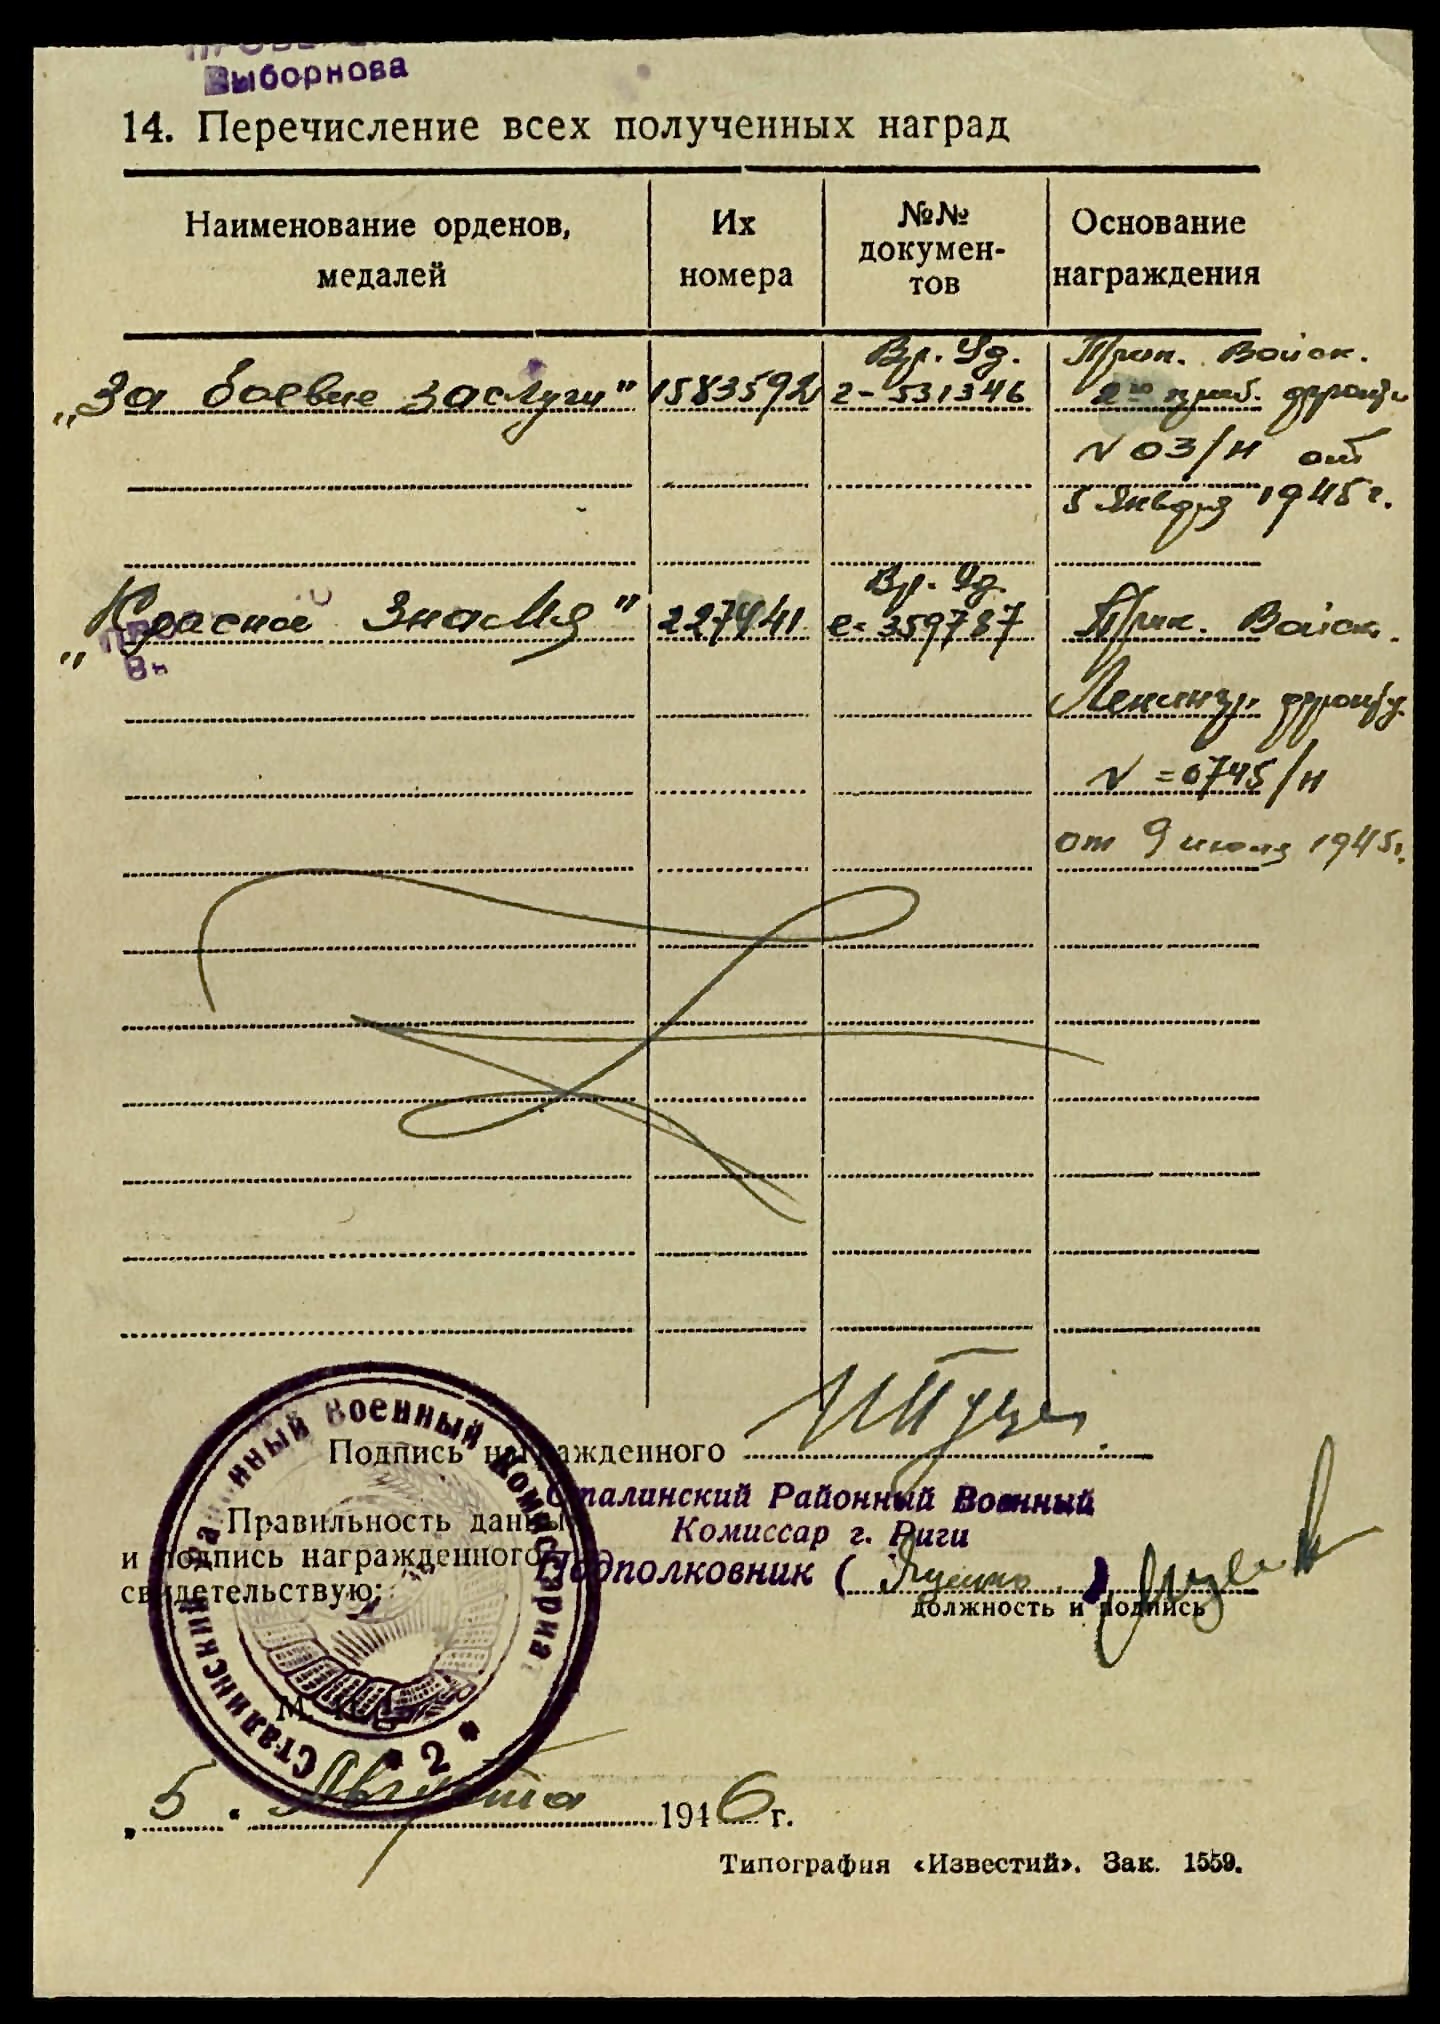 Выборнова
14. Перечисление всех полученных наград
Наименование орденов, медалей
Их номера
№№ документов
Основание награждения
Вр. Уд. Прик. Войск.
„За боевые заслуги" 1583592 г-531346 2го приб. фронту
N 03/н от
5 января 1945 г.
Вр. Уд.
„Красное Знамя" 227441 е-359787 Прик. Войск.
Ленингр. фронту
N=0745/н
от 9 июня 1945г.
Подпись награжденного
Сталинский Районный Военный
Комиссар г. Риги
Подполковник (
Правильность данных
и подпись награжденного
свидетельствую:
должность и подпись
Сталинский Районный Военный Комиссариат
* 2 *
М. П.
„5" Августа 1946 г.
Типография «Известий». Зак. 1559.